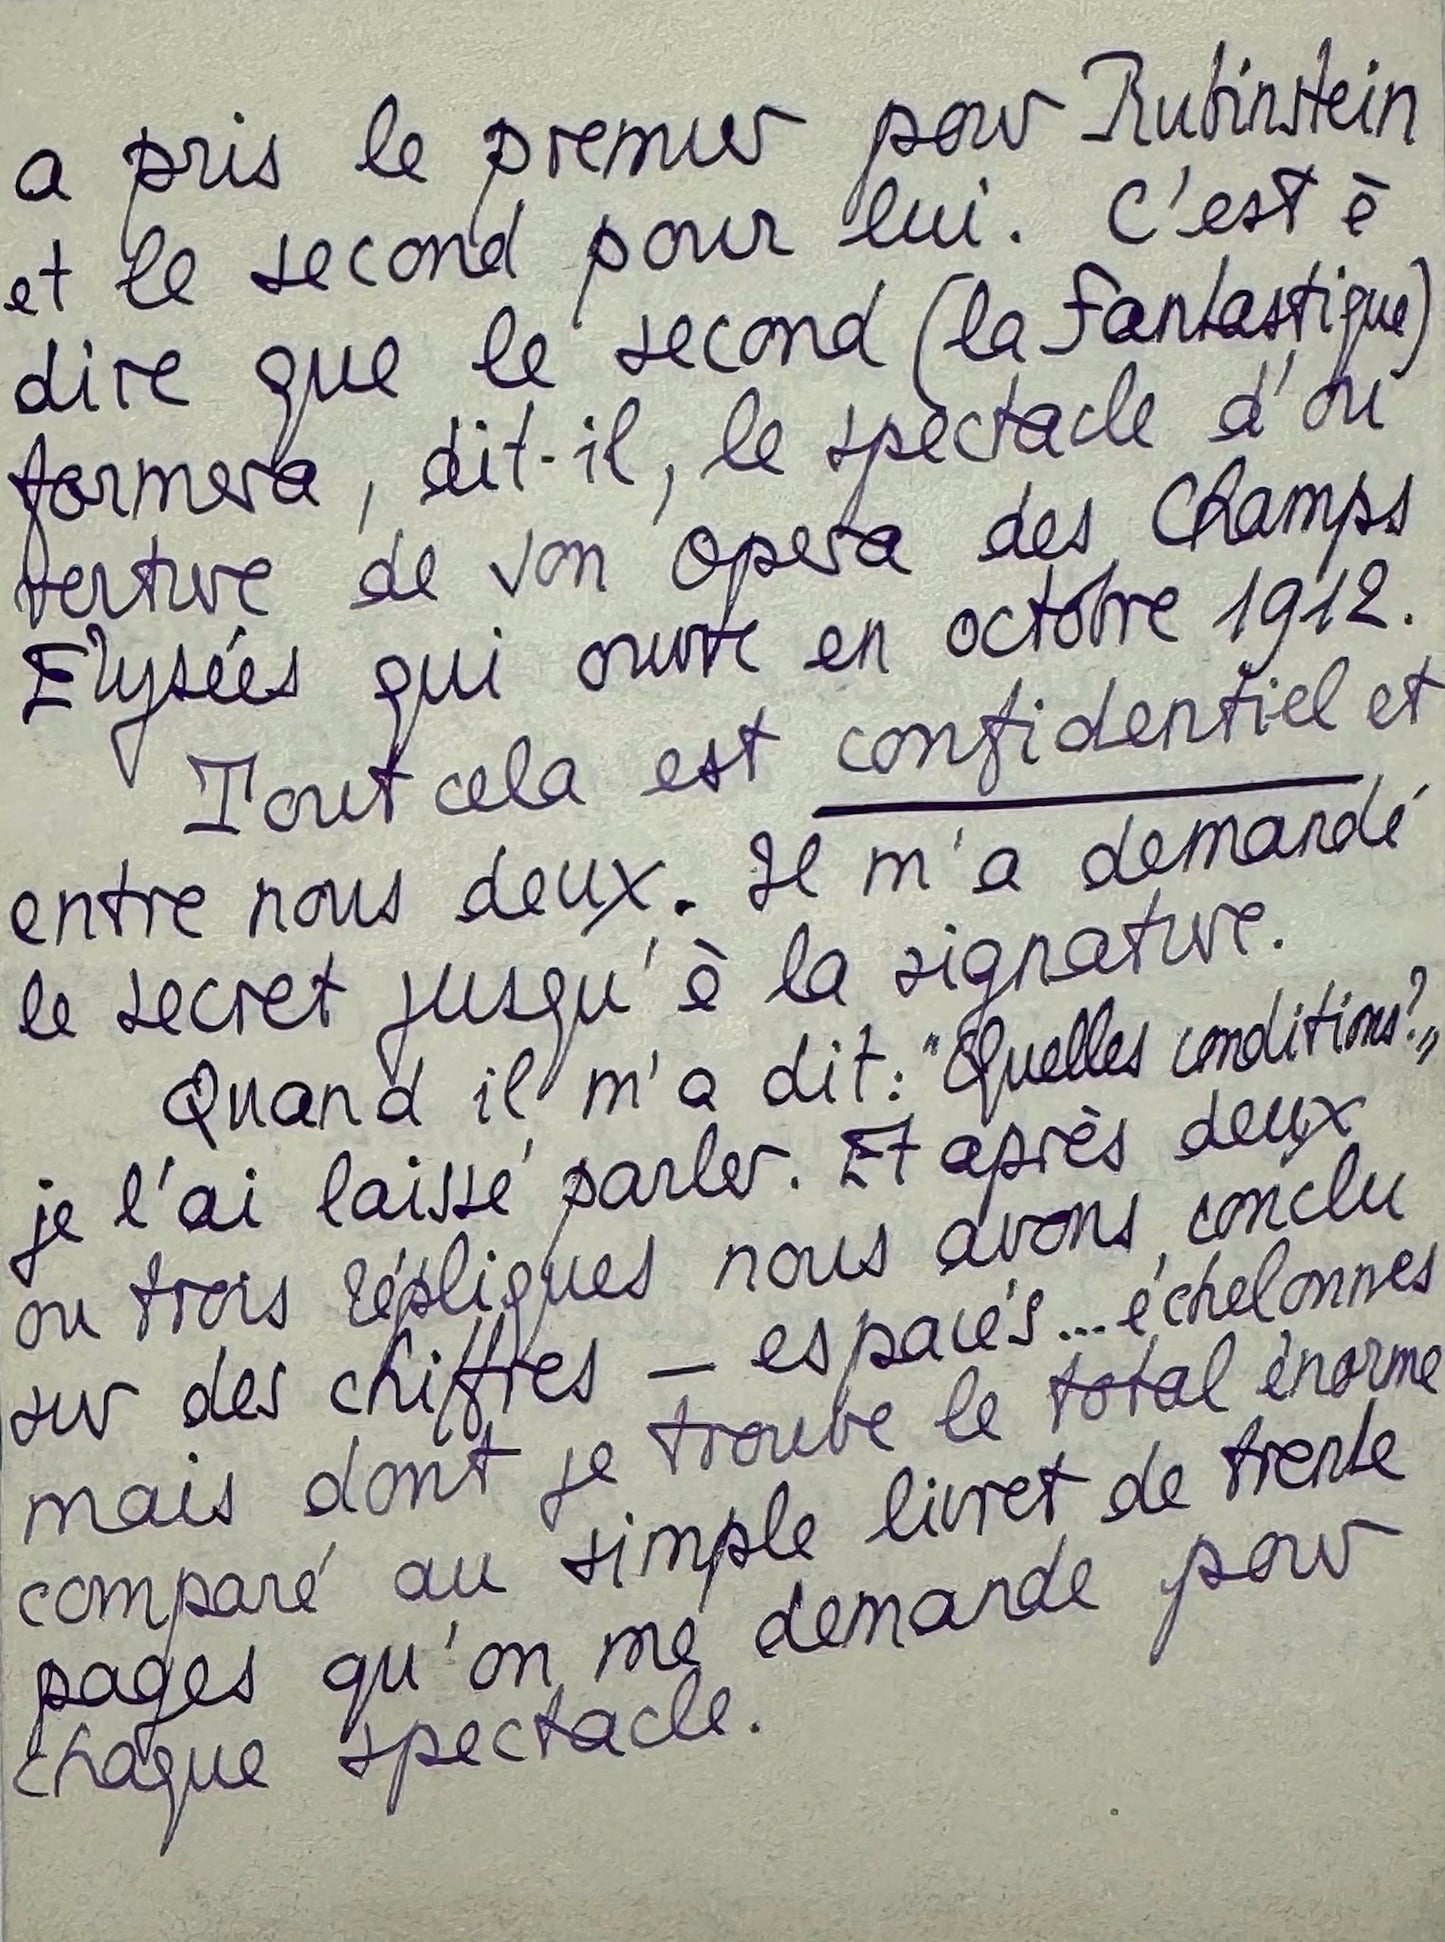 a pris le premier pour Rubinstein
et le second pour lui. C'est è
dire que le second (la Fantastique)
formera, dit-il, le spectacle d'ou
verture de son opera des Champs
Elysées qui ouvre en octobre 1912.
Tout cela est confidentiel et
entre nous deux. Il m'a demandé
le secret jusqu'è la signature.
Quand il m'a dit: "Quelles conditions?„
je l'ai laissé parler. Et après deux
ou trois répliques nous avons conclu
sur des chiffres — espacés... échelonnes
mais dont je trouve le total énorme
comparé au simple livret de trente
pages qu'on me demande pour
chaque spectacle.